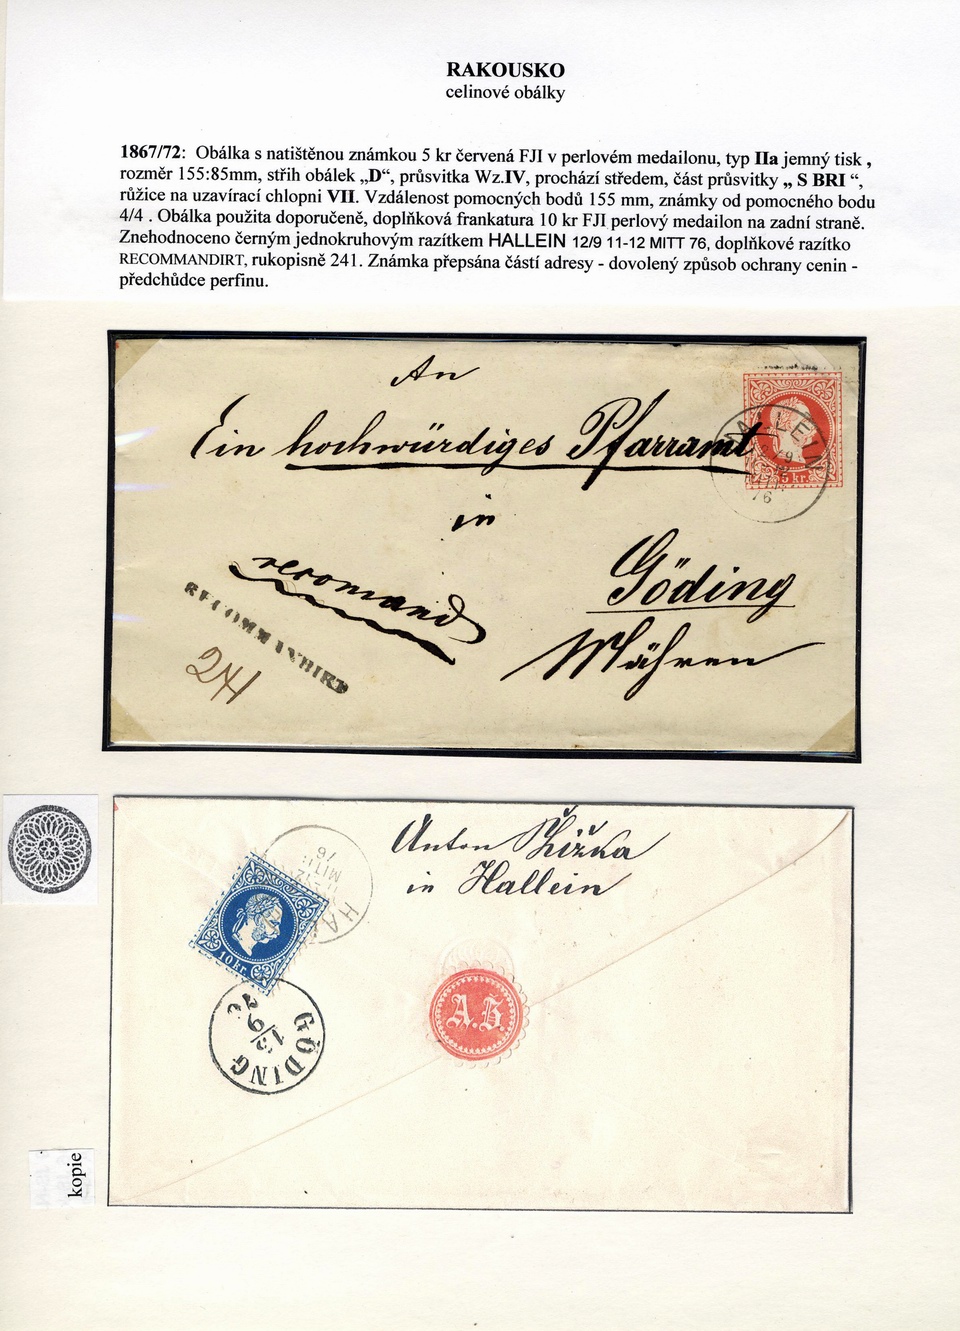 RAKOUSKO
celinové obálky
1867/72: Obálka s natištěnou známkou 5 kr červená FJI v perlovém medailonu, typ IIa jemný tisk ,
rozměr 155:85mm, střih obálek „D“, průsvitka Wz.IV, prochází středem, část průsvitky „ S BRI “,
růžice na uzavírací chlopni VII. Vzdálenost pomocných bodů 155 mm, známky od pomocného bodu
4/4 . Obálka použita doporučeně, doplňková frankatura 10 kr FJI perlový medailon na zadní straně.
Znehodnoceno černým jednokruhovým razítkem HALLEIN 12/9 11-12 MITT 76, doplňkové razítko
RECOMMANDIRT, rukopisně 241. Známka přepsána částí adresy - dovolený způsob ochrany cenin -
předchůdce perfinu.
An
Ein hochwürdiges Pfarramt
5 kr.
in
Göding
Mähren
recomand
RECOMMANDIRT
241
Anton Žižka
in Hallein
10 kr.
HAL
MITT:
76
A.Z.
GÖDING
13/9
76
kopie